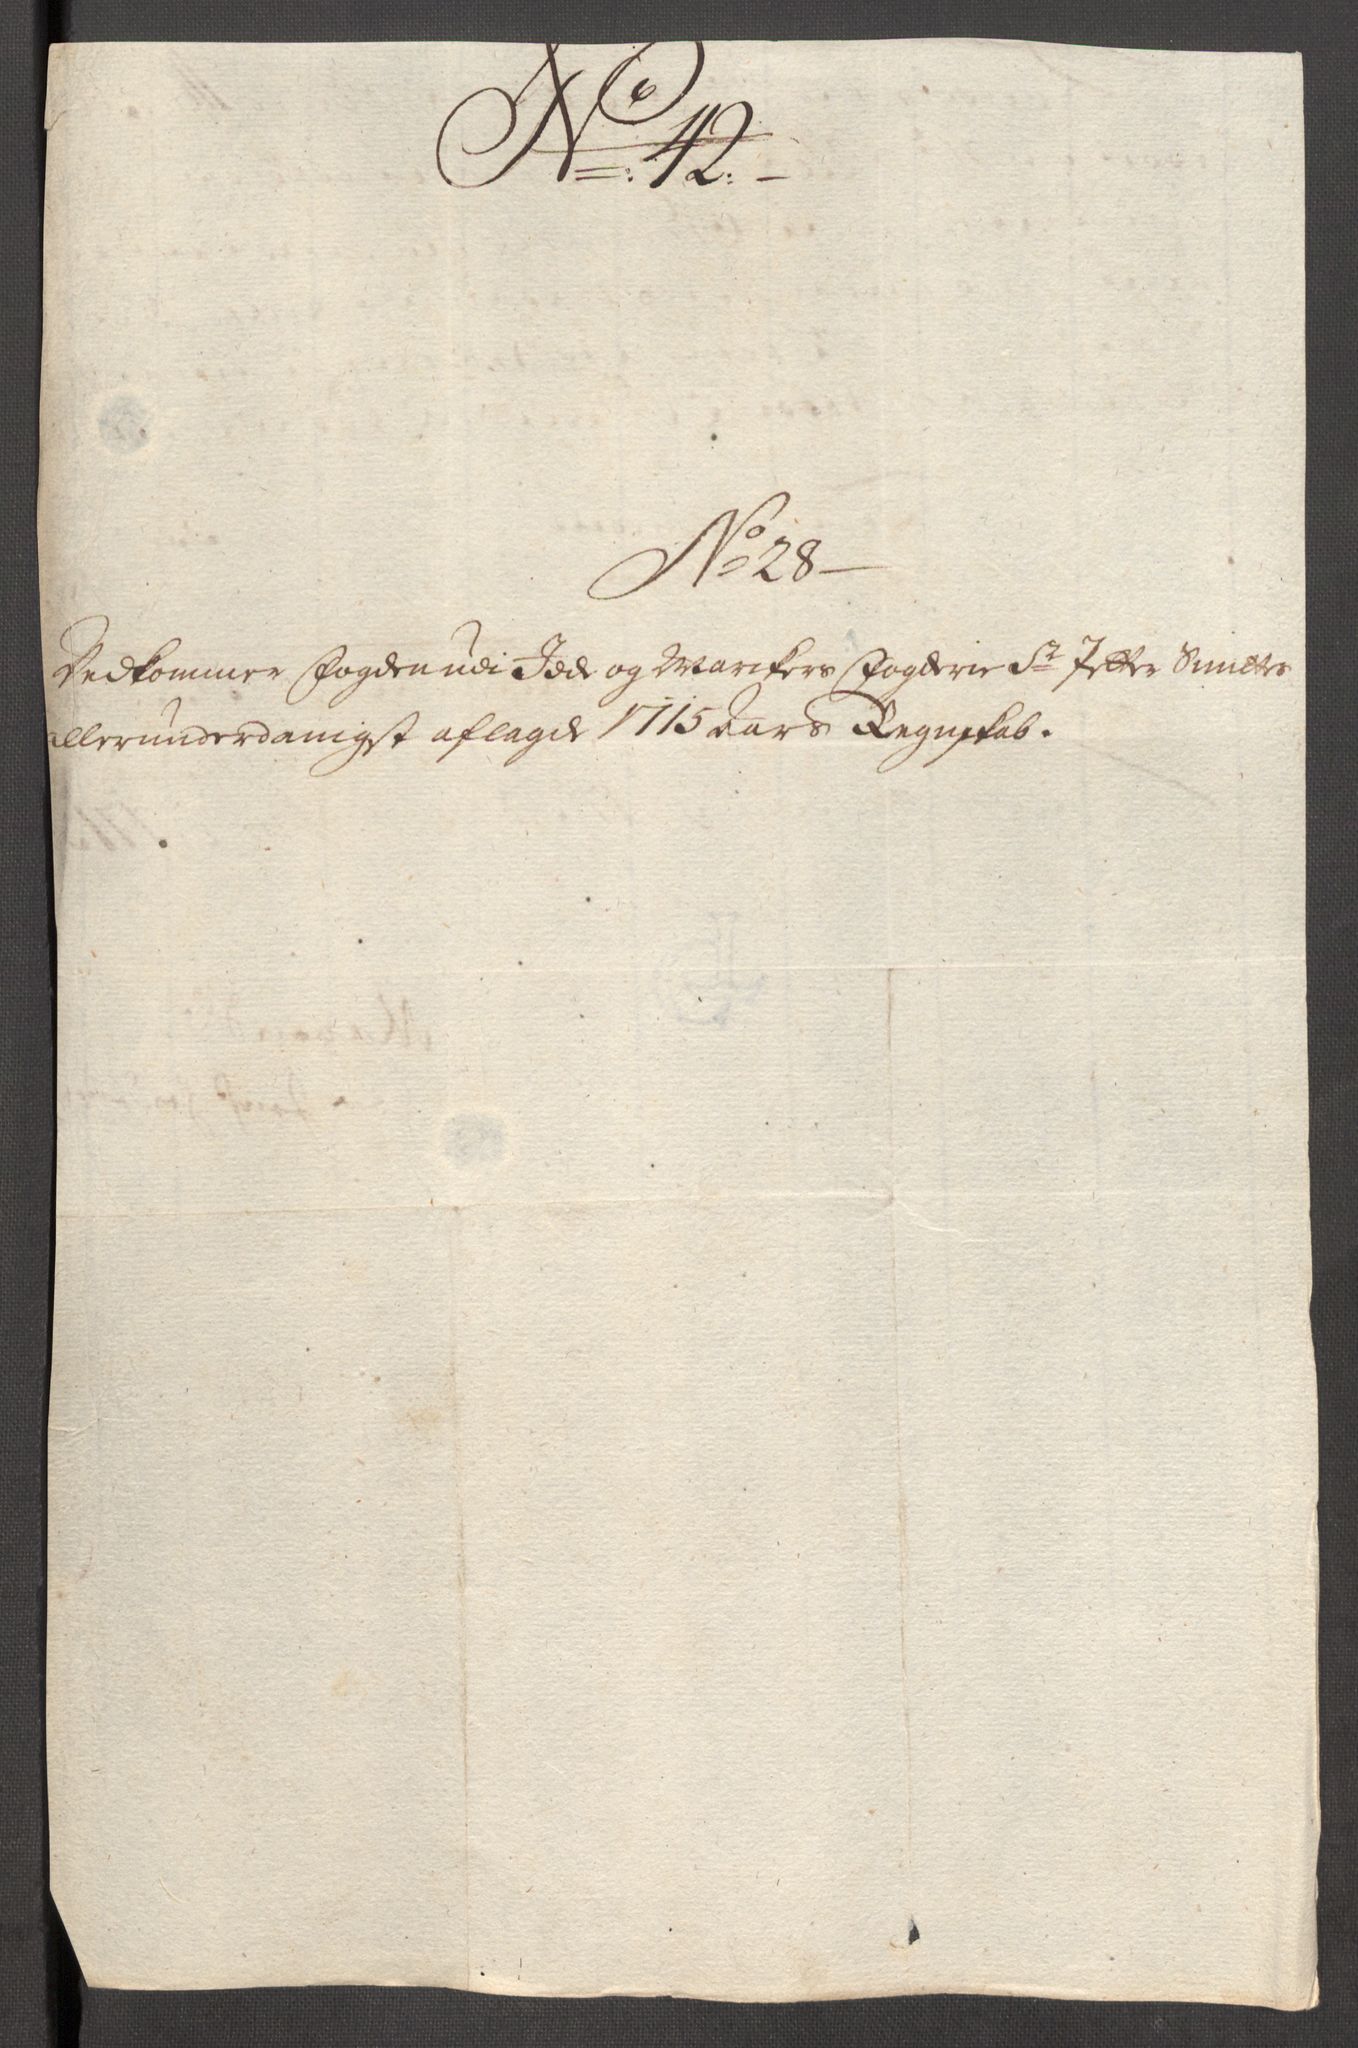 No: 42. -
No 28 -
Vedkommer Fogden udi Idde og Marckers Fogderie Sr Petter Smittes
allerunderdanigst aflagde 1715 Aars Regnskab.